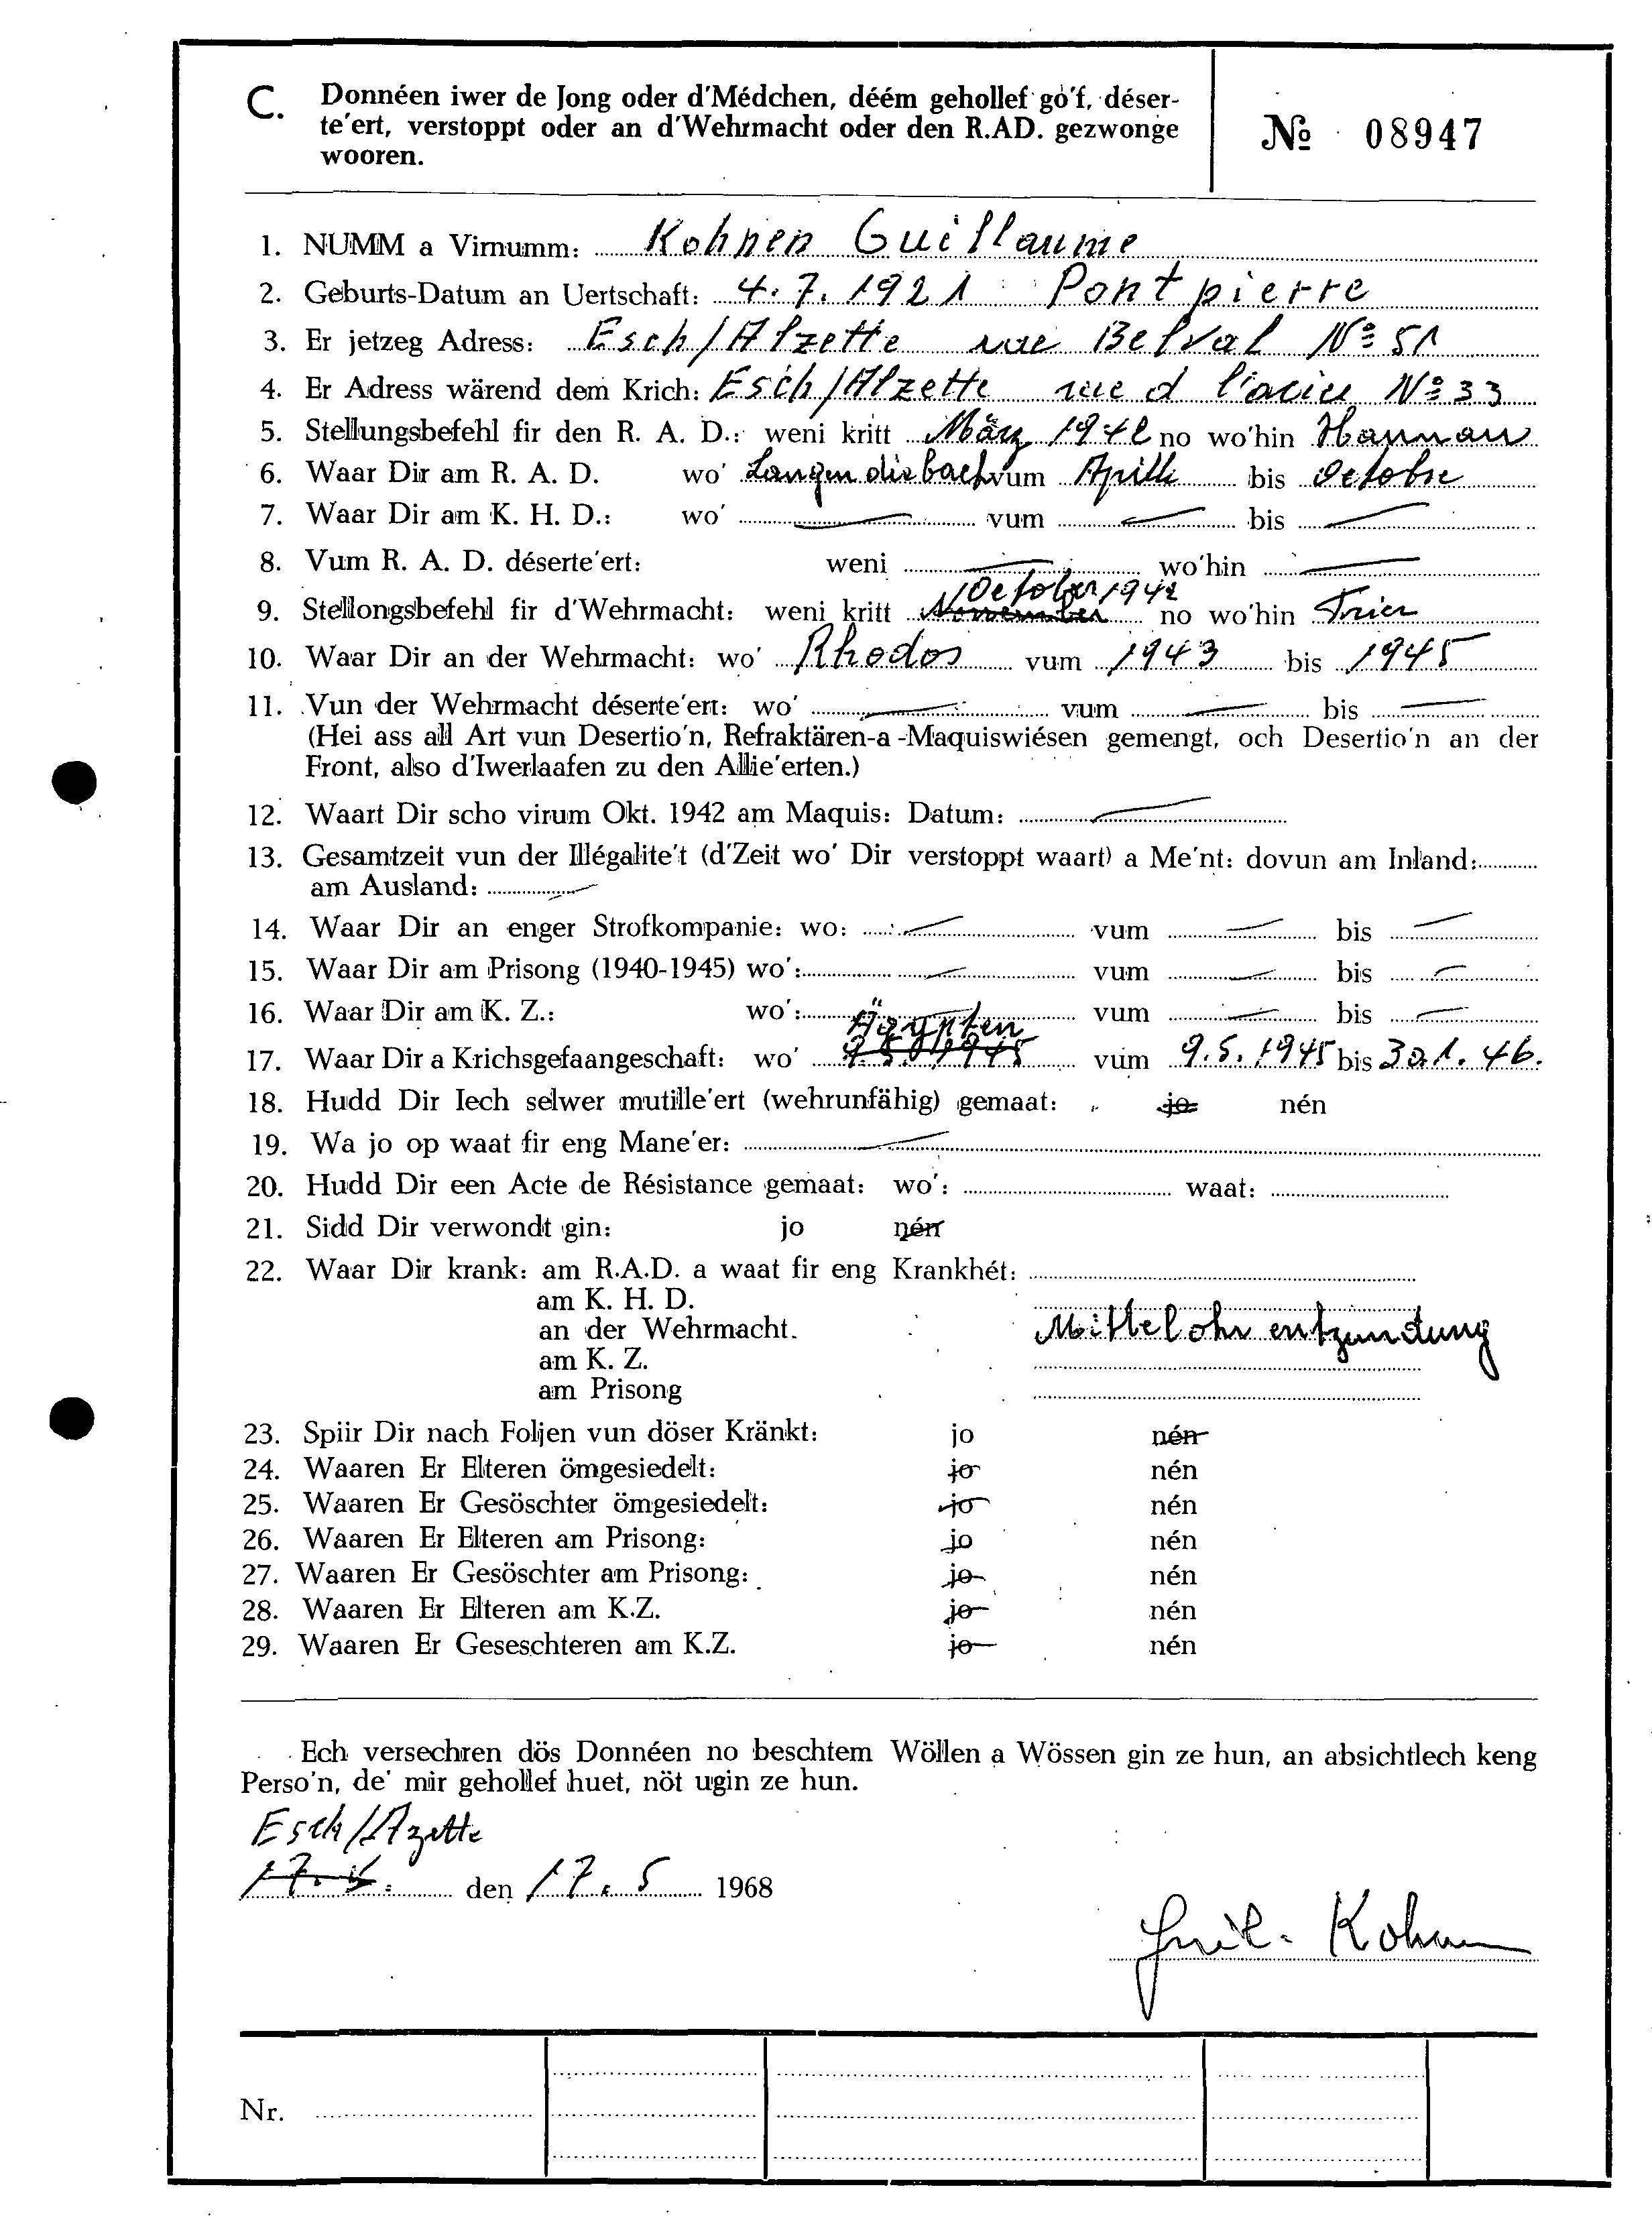 C. Donnéen iwer de Jong oder d'Médchen, déém gehollef go'f, déser-
te'ert, verstoppt oder an d'Wehrmacht oder den R.AD. gezwonge
wooren.
№ 08947
1. NUMM a Virnumm: Kohnen Guillaume
2. Geburts-Datum an Uertschaft: 4.7.1921 Pontpierre
3. Er jetzeg Adress: Esch/Alzette rue Belval № 51
4. Er Adress wärend dem Krich: Esch/Alzette rue d l'acier № 33
5. Stellungsbefehl fir den R. A. D.: weni kritt März 1942 no wo'hin Hannau
6. Waar Dir am R. A. D. wo' Langendiebach vum Aprill bis Octobre
7. Waar Dir am K. H. D.: wo' — vum — bis —
8. Vum R. A. D. déserte'ert: weni — wo'hin —
9. Stellongsbefehl fir d'Wehrmacht: weni kritt November October 1942 no wo'hin Trier
10. Waar Dir an der Wehrmacht: wo' Rhodos vum 1943 bis 1945
11. Vun der Wehrmacht déserte'ert: wo' — vum — bis —
(Hei ass all Art vun Desertio'n, Refraktären-a-Maquiswiésen gemengt, och Desertio'n an der
Front, also d'Iwerlaafen zu den Allie'erten.)
12. Waart Dir scho virum Okt. 1942 am Maquis: Datum: —
13. Gesamtzeit vun der Illégalite't (d'Zeit wo' Dir verstoppt waart) a Me'nt: dovun am Inland:
am Ausland: —
14. Waar Dir an enger Strofkompanie: wo: — vum — bis —
15. Waar Dir am Prisong (1940-1945) wo': — vum — bis —
16. Waar Dir am K. Z.: wo': vum — bis —
17. Waar Dir a Krichsgefaangeschaft: wo' Ägypten 9.5.1945 vum 9.5.1945 bis 30.1.46.
18. Hudd Dir Iech selwer mutille'ert (wehrunfähig) gemaat: jo nén
19. Wa jo op waat fir eng Mane'er: —
20. Hudd Dir een Acte de Résistance gemaat: wo': waat:
21. Sidd Dir verwondt gin: jo nén
22. Waar Dir krank: am R.A.D. a waat fir eng Krankhét:
am K. H. D.
an der Wehrmacht. Mittelohrentzundung
am K. Z.
am Prisong
23. Spiir Dir nach Foljen vun döser Kränkt: jo nén
24. Waaren Er Elteren ömgesiedelt: jo nén
25. Waaren Er Gesöschter ömgesiedelt: jo nén
26. Waaren Er Elteren am Prisong: jo nén
27. Waaren Er Gesöschter am Prisong: jo nén
28. Waaren Er Elteren am K.Z. jo nén
29. Waaren Er Geseschteren am K.Z. jo nén
Ech versechren dös Donnéen no beschtem Wöllen a Wössen gin ze hun, an absichtlech keng
Perso'n, de' mir gehollef huet, nöt ugin ze hun.
Esch/Azette
17. 5. den 17. 5 1968
Guil. Kohnen
Nr.